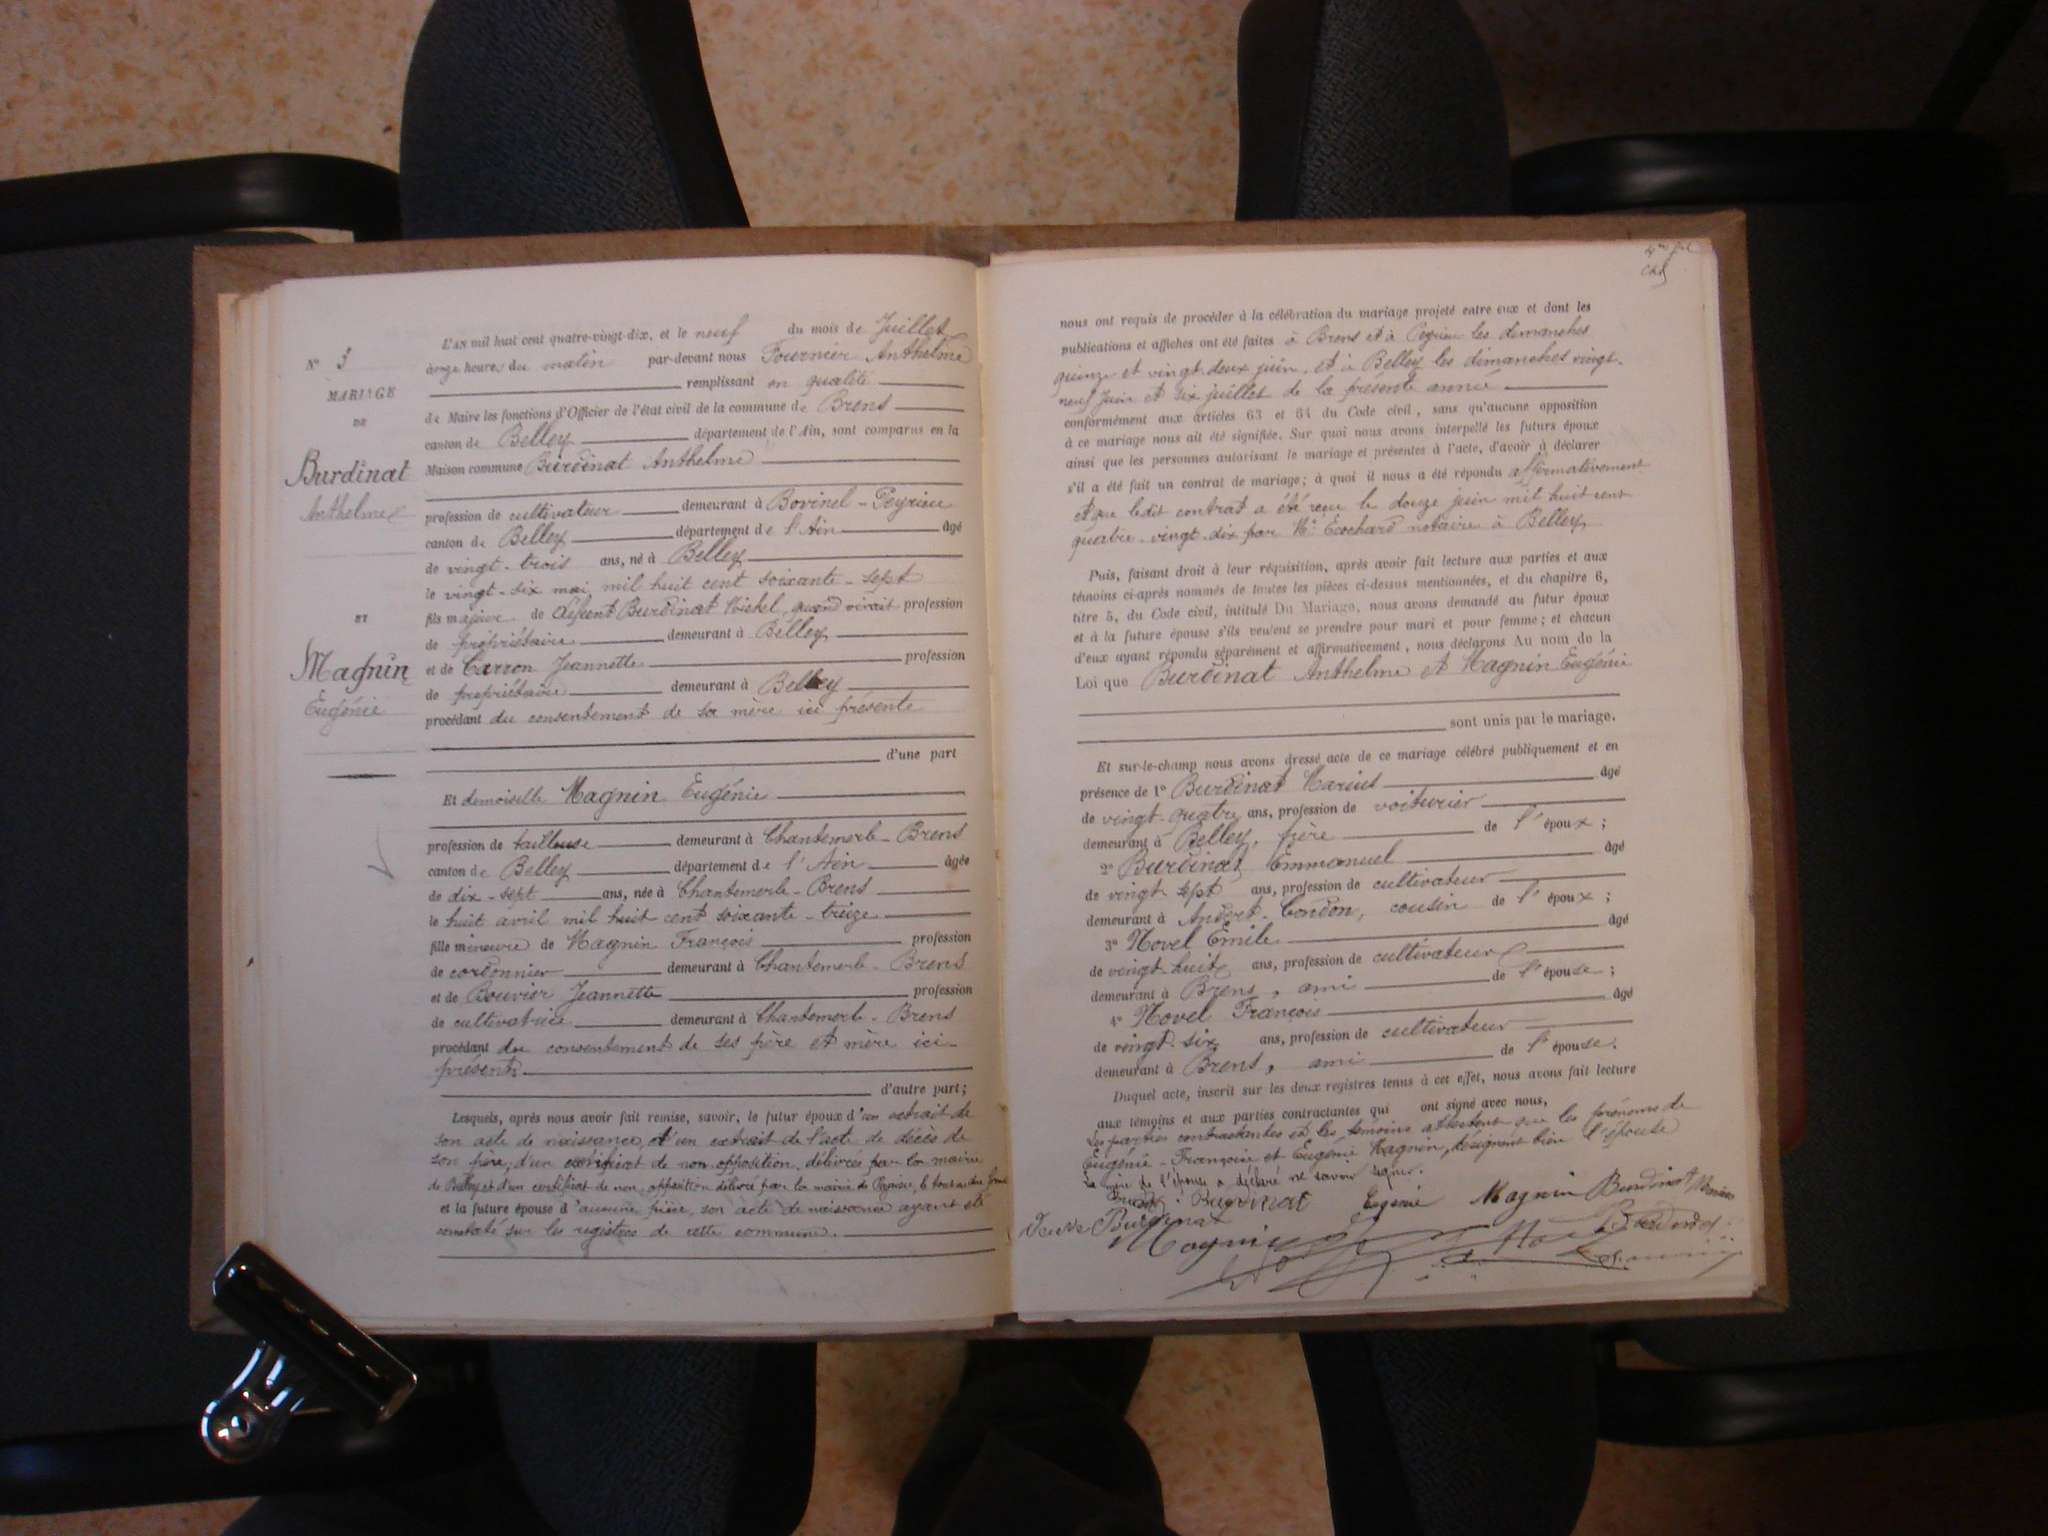 N° 3
MARIAGE
DE
Burdinat
Anthelme
ET
Magnin
Eugénie
L'AN mil huit cent quatre-vingt-dix, et le neuf du mois de Juillet
à onze heures du matin par-devant nous Fournier Anthelme
remplissant en qualité
de Maire les fonctions d'Officier de l'état civil de la commune de Brens
canton de Belley département de l'Ain, sont comparus en la
Maison commune Burdinat Anthelme
profession de cultivateur demeurant à Bovinel - Peyrieu
canton de Belley département de l'Ain âgé
de vingt-trois ans, né à Belley
le vingt-six mai mil huit cent soixante-sept
fils majeur de défunt Burdinat Michel, quand vivait profession
de propriétaire demeurant à Belley
et de Carron Jeannette profession
de propriétaire demeurant à Belley
procédant du consentement de sa mère ici présente
d'une part
Et demoiselle Magnin Eugénie
profession de tailleuse demeurant à Chantemerle - Brens
canton de Belley département de l'Ain âgée
de dix-sept ans, née à Chantemerle - Brens
le huit avril mil huit cent soixante-treize
fille mineure de Magnin François profession
de cordonnier demeurant à Chantemerle - Brens
et de Bouvier Jeannette profession
de cultivatrice demeurant à Chantemerle - Brens
procédant du consentement de ses père et mère ici
présents
d'autre part;
Lesquels, après nous avoir fait remise, savoir, le futur époux d'un extrait de
son acte de naissance, d'un extrait de l'acte de décès de
son père, d'un certificat de non opposition, délivrés par la mairie
de Belley et d'un certificat de non opposition délivré par la mairie de Peyrieu, le tout en due forme
et la future épouse d'aucune pièce, son acte de naissance ayant été
constaté sur les registres de cette commune.
nous ont requis de procéder à la célébration du mariage projeté entre eux et dont les
publications et affiches ont été faites à Brens et à Peyrieu les dimanches
quinze et vingt-deux juin, et à Belley les dimanches vingt-
neuf Juin et six juillet de la présente année
conformément aux articles 63 et 64 du Code civil, sans qu'aucune opposition
à ce mariage nous ait été signifiée. Sur quoi nous avons interpellé les futurs époux
ainsi que les personnes autorisant le mariage et présentes à l'acte, d'avoir à déclarer
s'il a été fait un contrat de mariage; à quoi il nous a été répondu affirmativement
et que ledit contrat a été reçu le douze juin mil huit cent
quatre-vingt-dix par Me Ecochard notaire à Belley
Puis, faisant droit à leur réquisition, après avoir fait lecture aux parties et aux
témoins ci-après nommés de toutes les pièces ci-dessus mentionnées, et du chapitre 6,
titre 5, du Code civil, intitulé Du Mariage, nous avons demandé au futur époux
et à la future épouse s'ils veulent se prendre pour mari et pour femme; et chacun
d'eux ayant répondu séparément et affirmativement, nous déclarons Au nom de la
Loi que Burdinat Anthelme et Magnin Eugénie
sont unis par le mariage.
Et sur-le-champ nous avons dressé acte de ce mariage célébré publiquement et en
présence de 1° Burdinat Marius âgé
de vingt-quatre ans, profession de voiturier
demeurant à Belley, frère de l'époux;
2° Burdinat Emmanuel âgé
de vingt sept ans, profession de cultivateur
demeurant à Andert-Condon, cousin de l'époux;
3° Hovel Emile âgé
de vingt-huit ans, profession de cultivateur
demeurant à Brens, ami de l'épouse;
4° Hovel François âgé
de vingt-six ans, profession de cultivateur
demeurant à Brens, ami de l'épouse.
Duquel acte, inscrit sur les deux registres tenus à cet effet, nous avons fait lecture
aux témoins et aux parties contractantes qui ont signé avec nous,
Les parties contractantes et les témoins attestent que les prénoms de
Eugénie-Françoise et Eugénie Magnin, désignent bien l'épouse
La mère de l'épouse a déclaré ne savoir signer.
Burdinat Eugénie Magnin Burdinat Marius
Veuve Burdinat
Magnin